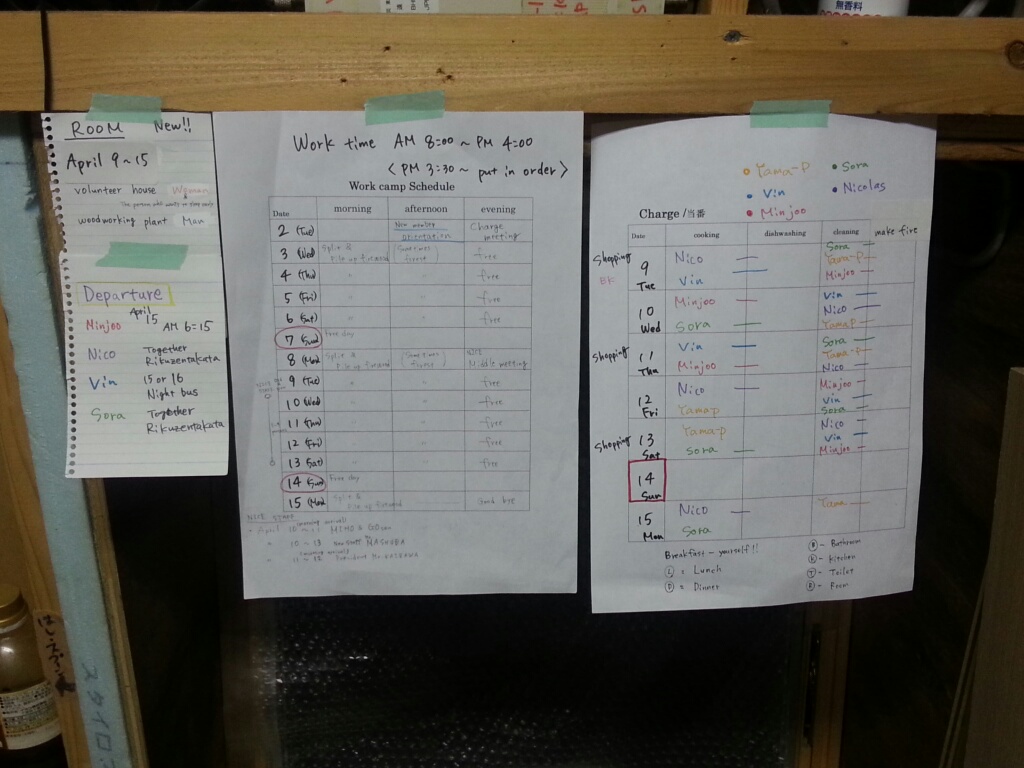 無香料
ROOM New!!
April 9~15
volunteer house Woman
woodworking plant Man
Departure
Minjoo April 15
AM 6:15
Nico Together
Rikuzentakata
Vin 15 or 16
Night bus
Sora Together
Rikuzentakata
Work time AM 8:00 ~ PM 4:00
< PM 3:30 ~ put in order >
Work camp Schedule
Date morning afternoon evening
2 (Tue) New member orientation Charge meeting
3 (Wed) Split & Pile up firewood (Sometimes forest) free
4 (Thu) 〃 〃 free
5 (Fri) 〃 〃 free
6 (Sat) 〃 〃 free
7 (Sun) Free day
8 (Mon) Split & Pile up firewood (Sometimes forest) Middle meeting
9 (Tue) 〃 〃 free
10 (Wed) 〃 〃 free
11 (Thu) 〃 〃 free
12 (Fri) 〃 〃 free
13 (Sat) 〃 〃 free
14 (Sun) Free day
15 (Mon) Split & Pile up firewood Good bye
April 10 ~
〃 10 ~ 13
〃 11 ~
Yama-P Sora
Vin Nicolas
Minjoo
Charge /当番
Date cooking dishwashing cleaning make fire
Shopping 9 Tue Nico Vin Sora Yama-P Minjoo
10 Wed Minjoo Sora Vin Nico Yama-P
Shopping 11 Thu Vin Minjoo Sora Yama-P Nico
12 Fri Nico Yamap Minjoo Vin Sora
Shopping 13 Sat Yama-P Sora Nico Vin Minjoo
14 Sun
15 Mon Nico Sora Yama-P
Breakfast - yourself!!
Ⓛ = Lunch
Ⓓ = Dinner
Ⓑ - Bathroom
Ⓚ - Kitchen
Ⓣ - Toilet
Ⓡ - Room
スタイロ